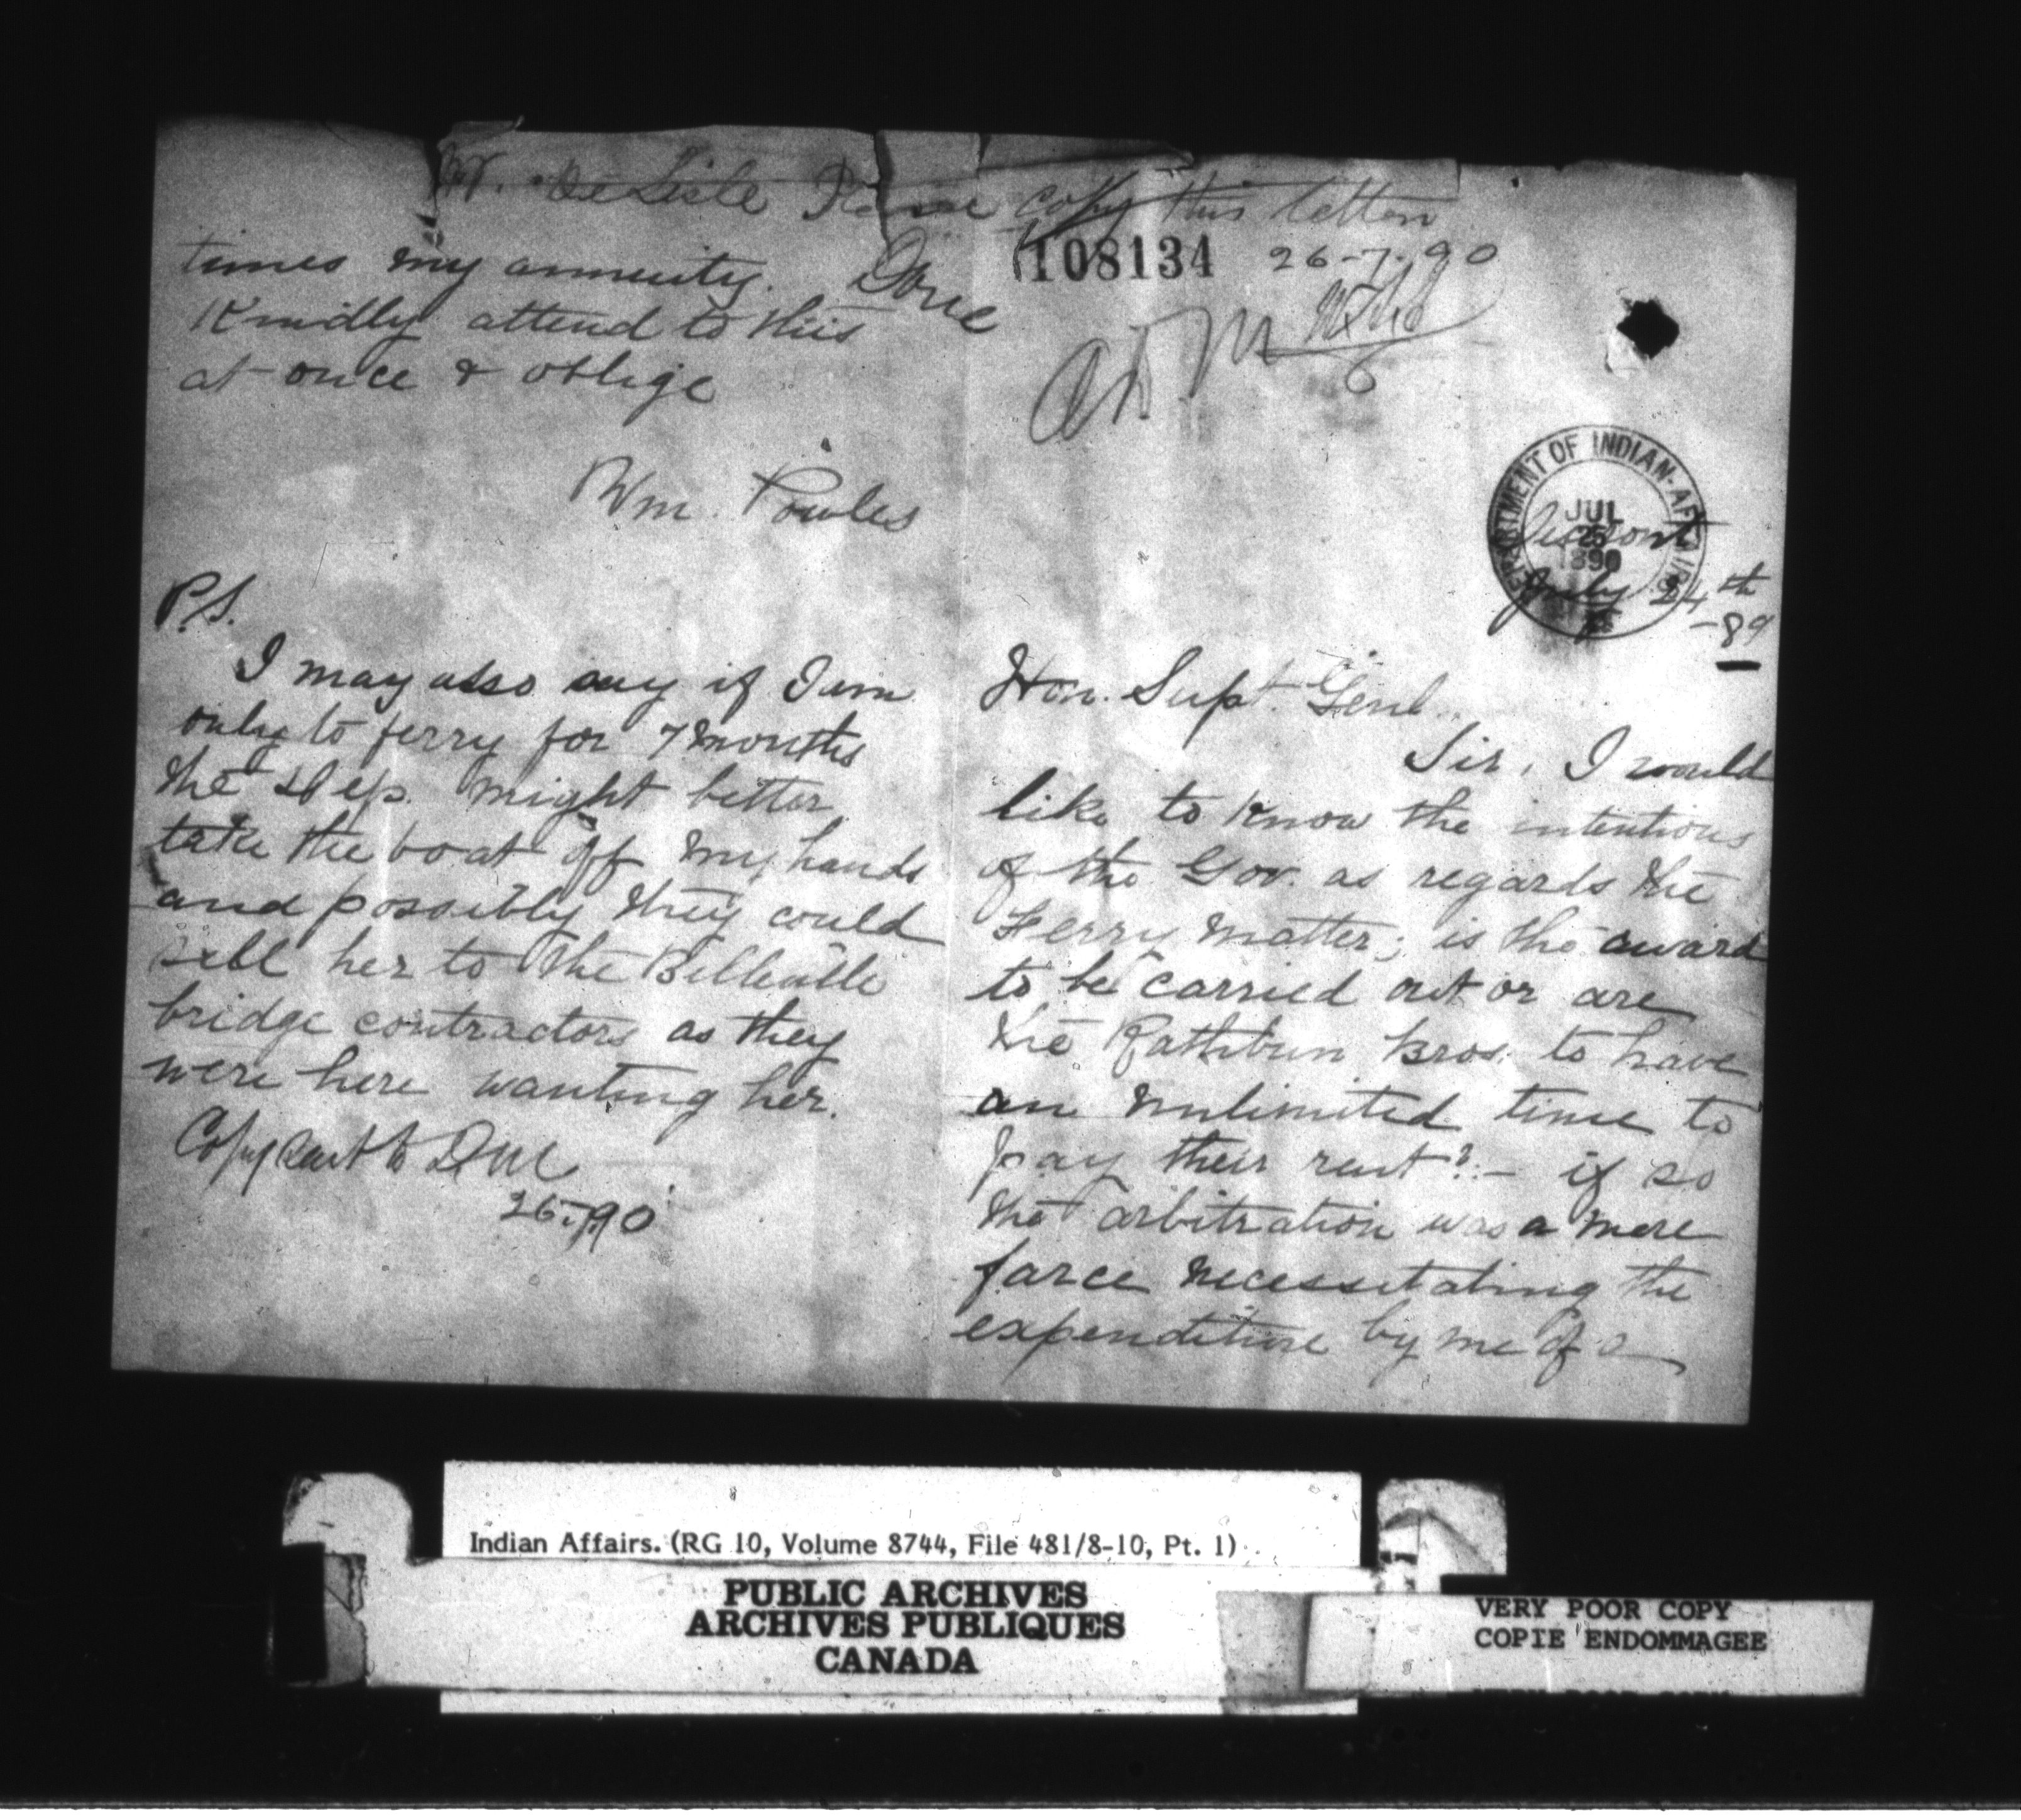 Mr. De Lisle Please copy this letter
108134 26-7-90
Done
times my annuity.
Kindly attend to this
at once & oblige
Wm. Powles
P.S.
I may also say if I am
only to ferry for 7 months
the Dep. might better
take the boat off my hands
and possibly they could
sell her to the Belleville
bridge contractors as they
were here wanting her.
Copy sent to DM
26-7-90
DEPARTMENT OF INDIAN-AFFAIRS
JUL
25
1890
July 24th
-89
Hon. Supt. Genl.
Sir, I would
like to know the intentions
of the Gov. as regards the
Ferry matter; is the award
to be carried out or are
the Rathbun Bros. to have
an unlimited time to
pay their rent? – if so
the arbitration was a mere
farce necessitating the
expenditure by me of a
Indian Affairs. (RG 10, Volume 8744, File 481/8-10, Pt. 1)
PUBLIC ARCHIVES
ARCHIVES PUBLIQUES
CANADA
VERY POOR COPY
COPIE ENDOMMAGEE